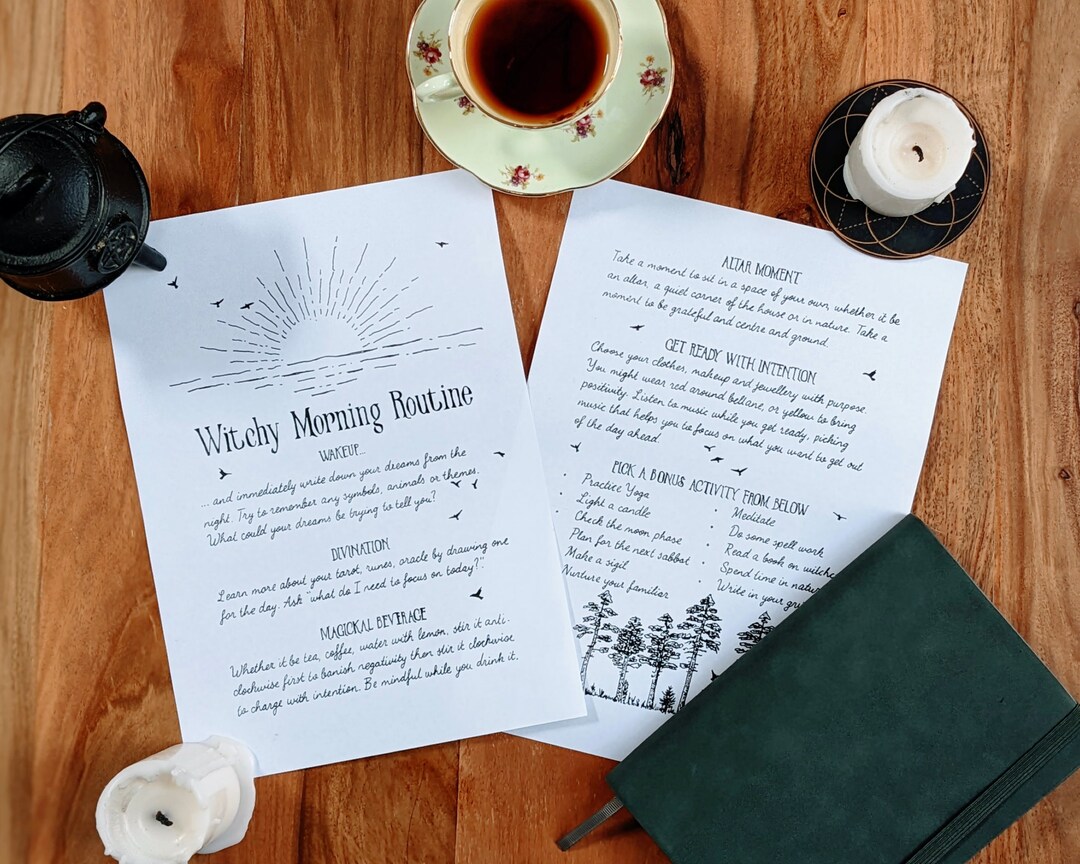 Witchy Morning Routine
WAKEUP...
... and immediately write down your dreams from the
night. Try to remember any symbols, animals or themes.
What could your dreams be trying to tell you?
DIVINATION
Learn more about your tarot, runes, oracle by drawing one
for the day. Ask "what do I need to focus on today?".
MAGICKAL BEVERAGE
Whether it be tea, coffee, water with lemon, stir it anti-
clockwise first to banish negativity then stir it clockwise
to charge with intention. Be mindful while you drink it.
ALTAR MOMENT
Take a moment to sit in a space of your own, whether it be
an altar, a quiet corner of the house or in nature. Take a
moment to be grateful and centre and ground.
GET READY WITH INTENTION
Choose your clothes, makeup and jewellery with purpose.
You might wear red around beltane, or yellow to bring
positivity. Listen to music while you get ready, picking
music that helps you to focus on what you want to get out
of the day ahead.
PICK A BONUS ACTIVITY FROM BELOW
• Practice Yoga
• Light a candle
• Check the moon phase
• Plan for the next sabbat
• Make a sigil
• Nurture your familiar
• Meditate
• Do some spell work
• Read a book on witchc
• Spend time in natur
• Write in your gr